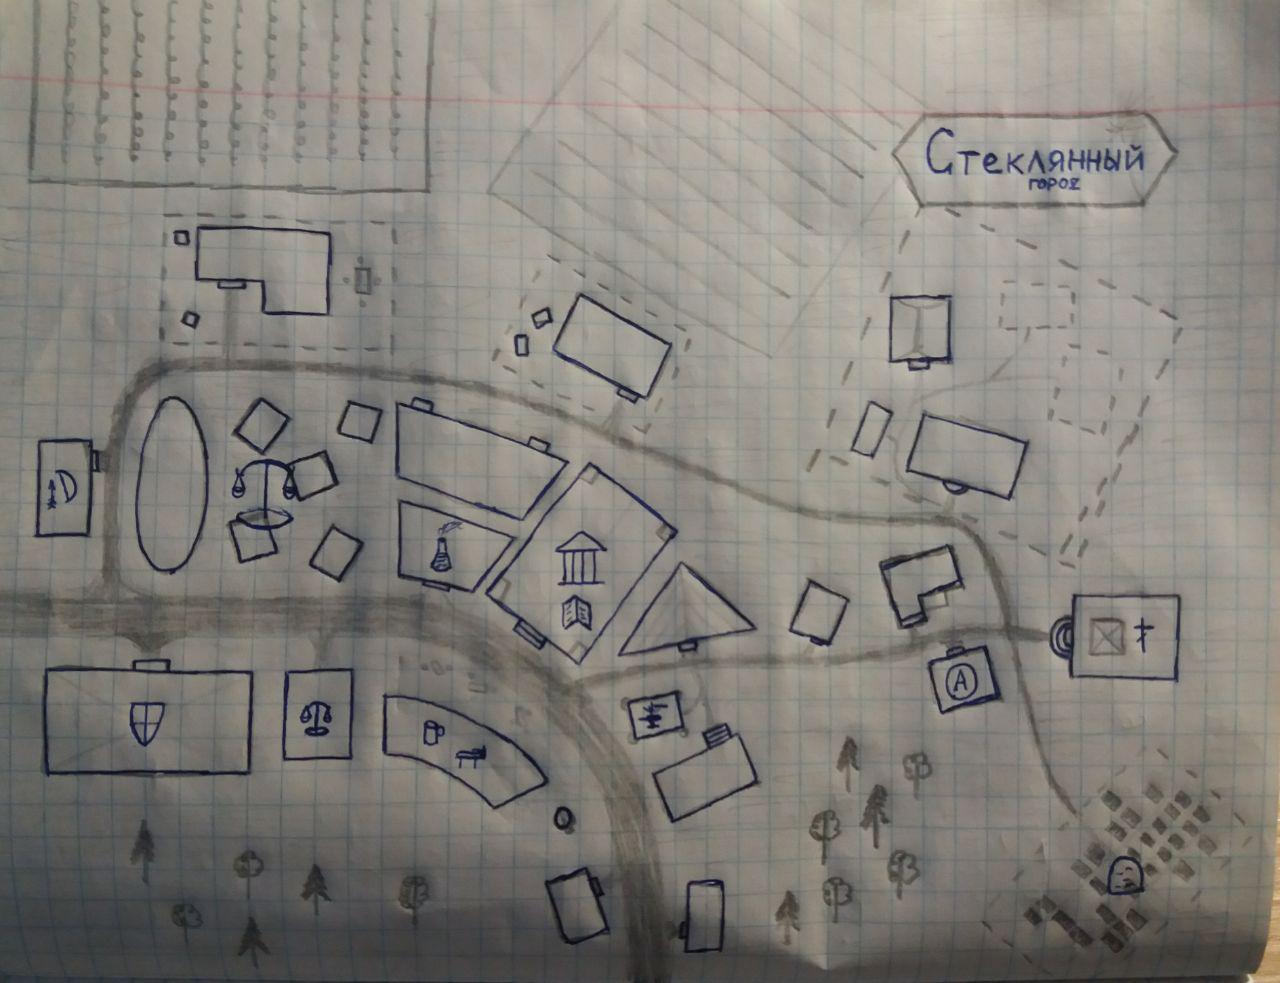 Стеклянный
город
А